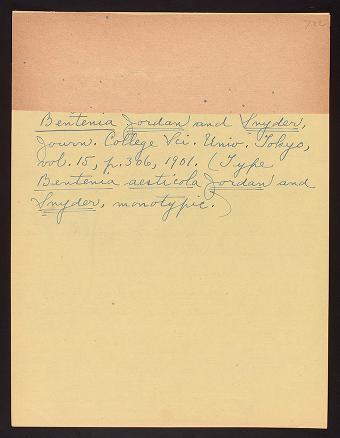 Bentenia Jordan and Snyder,
Journ. College Sci. Univ. Tokyo,
vol. 15, p. 306, 1901. (Type
Bentenia aesticola Jordan and
Snyder, monotypic.)